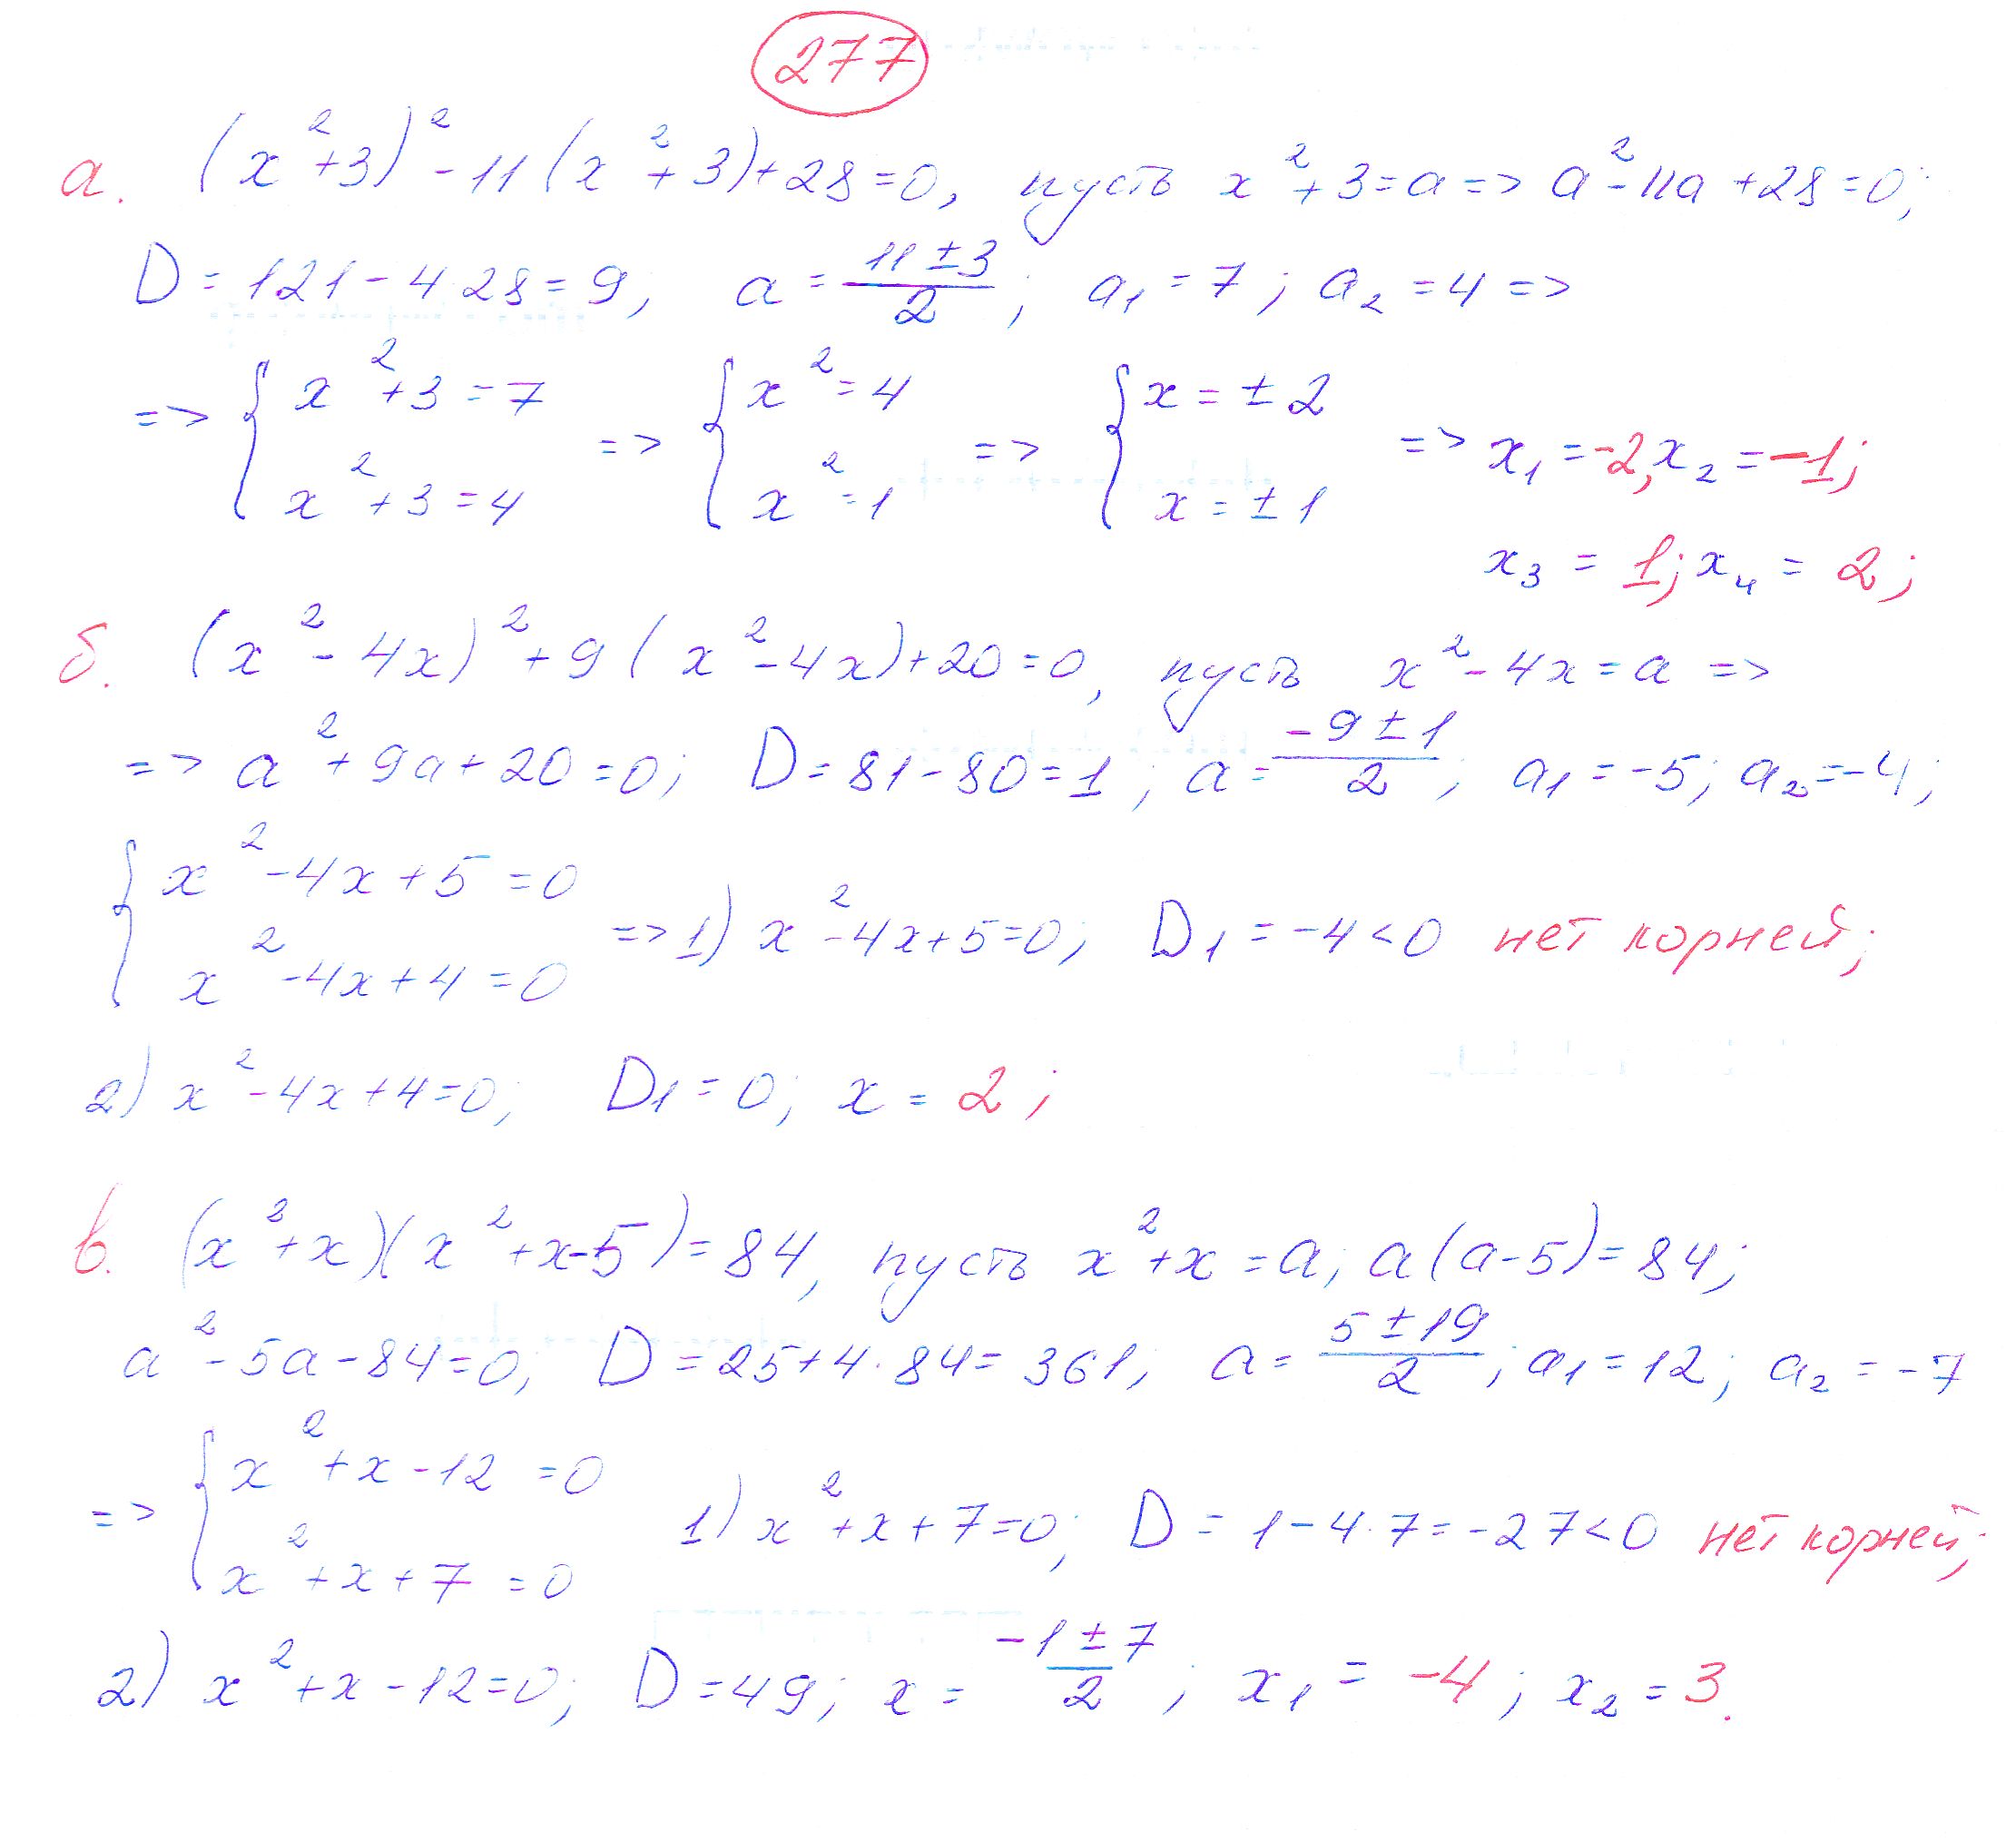 277
а. (x²+3)²-11(x²+3)+28=0, пусть x²+3=a=> a²-11a+28=0;
D=121-4·28=9, a=(11±3)/2; a₁=7; a₂=4=>
=> { x²+3=7 => { x²=4 => { x=±2 => x₁=-2, x₂=-1;
x²+3=4 x²=1 x=±1
x₃=1; x₄=2;
б. (x²-4x)²+9(x²-4x)+20=0, пусть x²-4x=a=>
=> a²+9a+20=0; D=81-80=1; a=(-9±1)/2; a₁=-5; a₂=-4;
{ x²-4x+5=0 => 1) x²-4x+5=0; D₁=-4<0 нет корней;
x²-4x+4=0
2) x²-4x+4=0; D₁=0; x=2;
в. (x²+x)(x²+x-5)=84, пусть x²+x=a; a(a-5)=84;
a²-5a-84=0; D=25+4·84=361; a=(5±19)/2; a₁=12; a₂=-7
=> { x²+x-12=0 1) x²+x+7=0; D=1-4·7=-27<0 нет корней;
x²+x+7=0
2) x²+x-12=0; D=49; x=(-1±7)/2; x₁=-4; x₂=3.